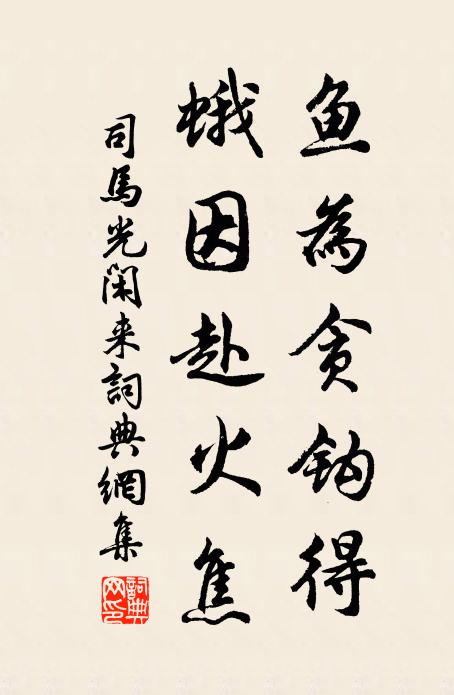 鱼為贪钩得
蛾因赴火焦
司馬光闲来詞典網集
詞典网印